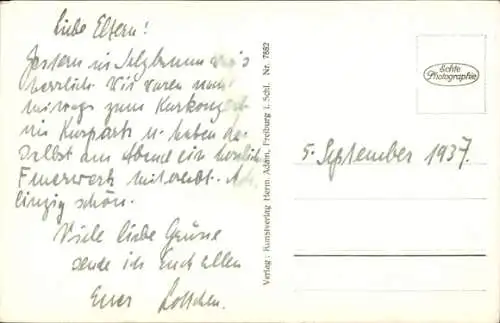 Liebe Eltern!
Gestern in Salzbrunn war's
herrlich. Wir waren nach-
mittags zum Kurkonzert
im Kurpark u. haben da-
selbst am Abend ein herrlich
Feuerwerk miterlebt.
einzig schön.
Viele liebe Grüsse
sende ich Euch allen
Euer Lottchen.
Verlag: Kunstverlag Herm. Adam, Freiburg i. Schl. Nr. 7882
Echte
Photographie
5. September 1937.